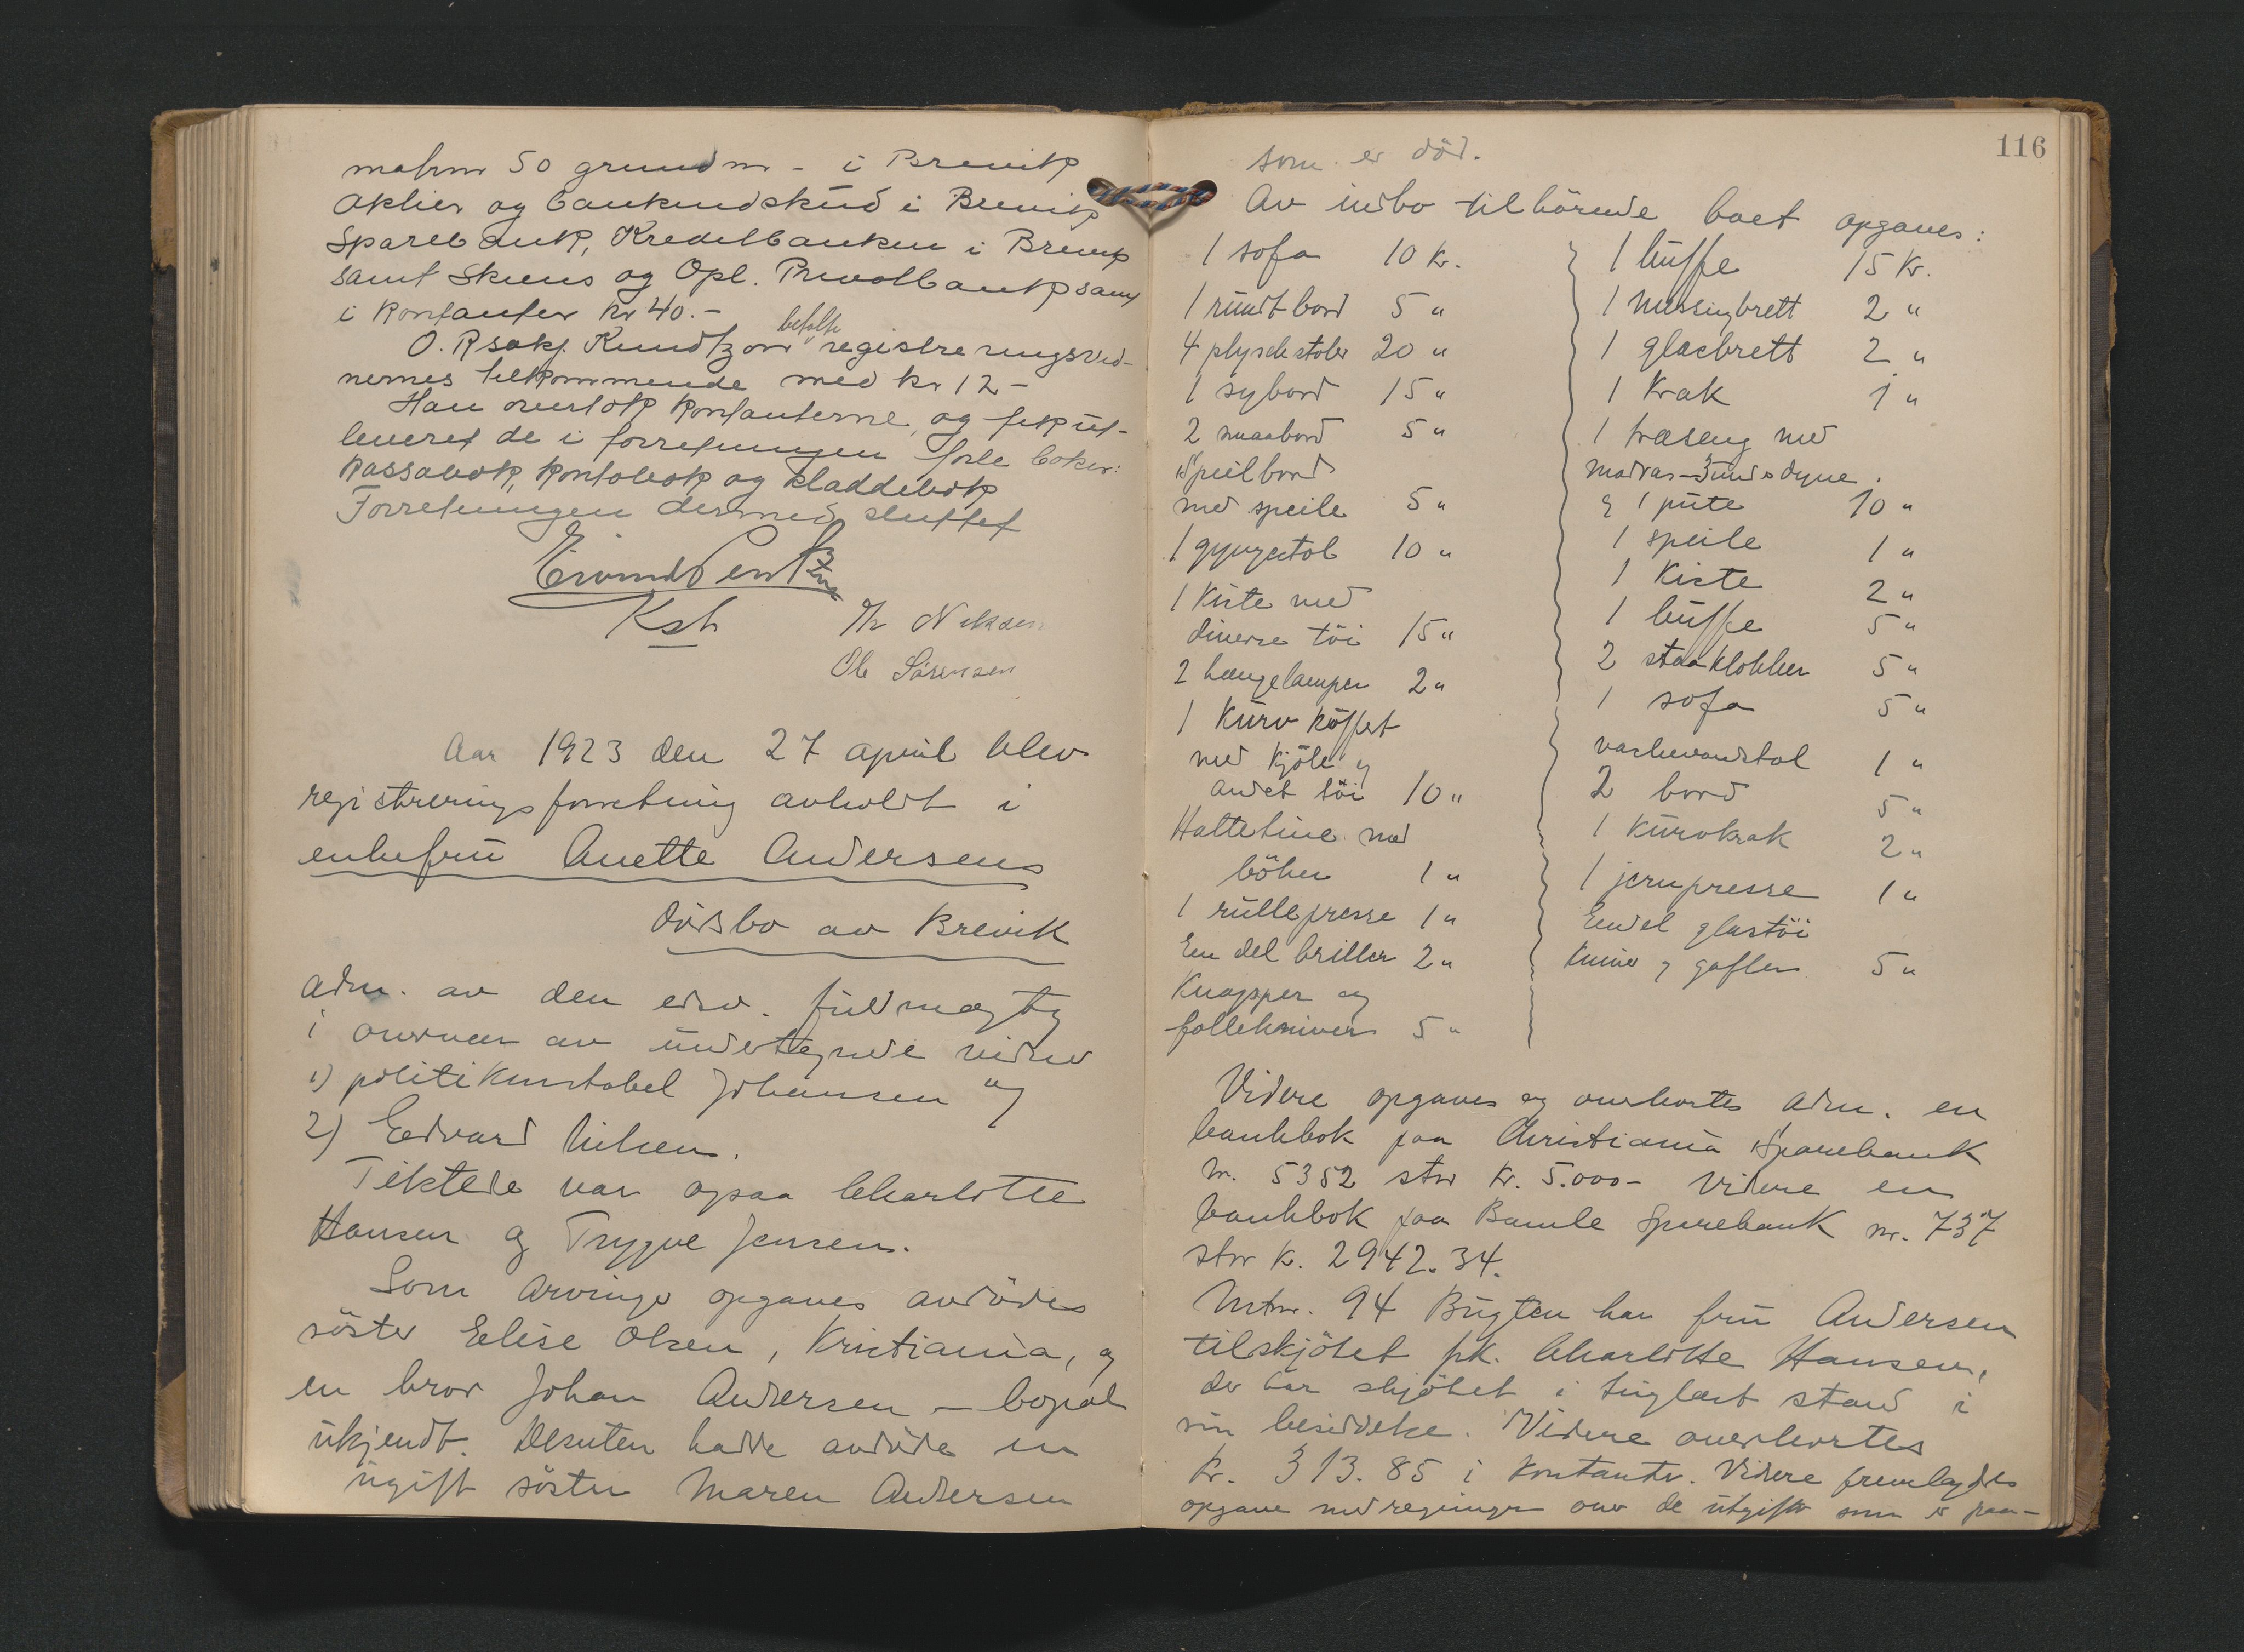 matrnr 50 grundnr - i Brevik
Aktier og bankindskud i Brevik
Sparebank, Kreditbanken i Brevik
samt Skiens og Opl. Privatbank samt
i kontanter kr 40.-
O.Rsakf. Knudtzon betalte registreringsvid-
nernes tilkommende med kr 12-
Han overtok kontanterne, og fik ut-
leveret de i forretningen førte bøker:
kassabok, kontobok og kladdebok
Forretningen dermed sluttet
Ksh
Nilsen
Ole Sørensen
Aar 1923 den 27 april blev
registreringsforretning avholdt i
enkefru Anette Andersens
dødsbo av Brevik
adm. av den edsv. fuldmægtig
i overvær av undertegnede vidner
1) politikonstabel Johansen og
2) Edvard Nilsen.
Tilstede var ogsaa Charlotte
Hansen og Trygve Jensen.
Som arvinger opgaves avdødes
søster Elise Olsen, Kristiania, og
en bror Johan Andersen – bopæl
ukjendt. Desuten hadde avdøde en
ugift søster Maren Andersen
116
som er død.
Av indbo tilhörende boet opgaves:
1 sofa 10 kr.
1 rundt bord 5 "
4 plyschstoler 20 "
1 sybord 15 "
2 smaabord 5 "
Speilbord
med speile 5 "
1 gyngestol 10 "
1 Kiste med
diverse töi 15 "
2 hængelamper 2 "
1 Kurv köffert
med Kjöle og
andet töi 10 "
Hattetine med
böker 1 "
1 rullepresse 1 "
En del briller 2 "
Knapper og
follekniver 5 "
1 buffe 15 Kr.
1 Messingbrett 2 "
1 glasbrett 2 "
1 Krak 1 "
1 træseng med
madras – underdyne.
og 1 pute 10 "
1 speile 1 "
1 Kiste 2 "
1 buffe 5 "
2 staaklokker 5 "
1 sofa 5 "
vaskevandstol 1 "
2 bord 5 "
1 Kurvkrak 2 "
1 jernpresse 1 "
Endel glastöi
Kniver og gafler 5 "
Videre opgaves og overlevertes adm. en
bankbok paa Christiania Sparebank
nr. 5352 stor kr. 5.000- Videre en
bankbok paa Bamle Sparebank nr. 737
stor kr. 2942.34.
Mtnr. 94 Bugten har fru Andersen
tilskjötet frk. Charlotte Hansen,
der har skjötet i tinglæst stand i
sin besiddelse. Videre overlevertes
kr. 313.85 i kontanter. Videre fremlagdes
opgave med regninger over de utgifter som er paa-